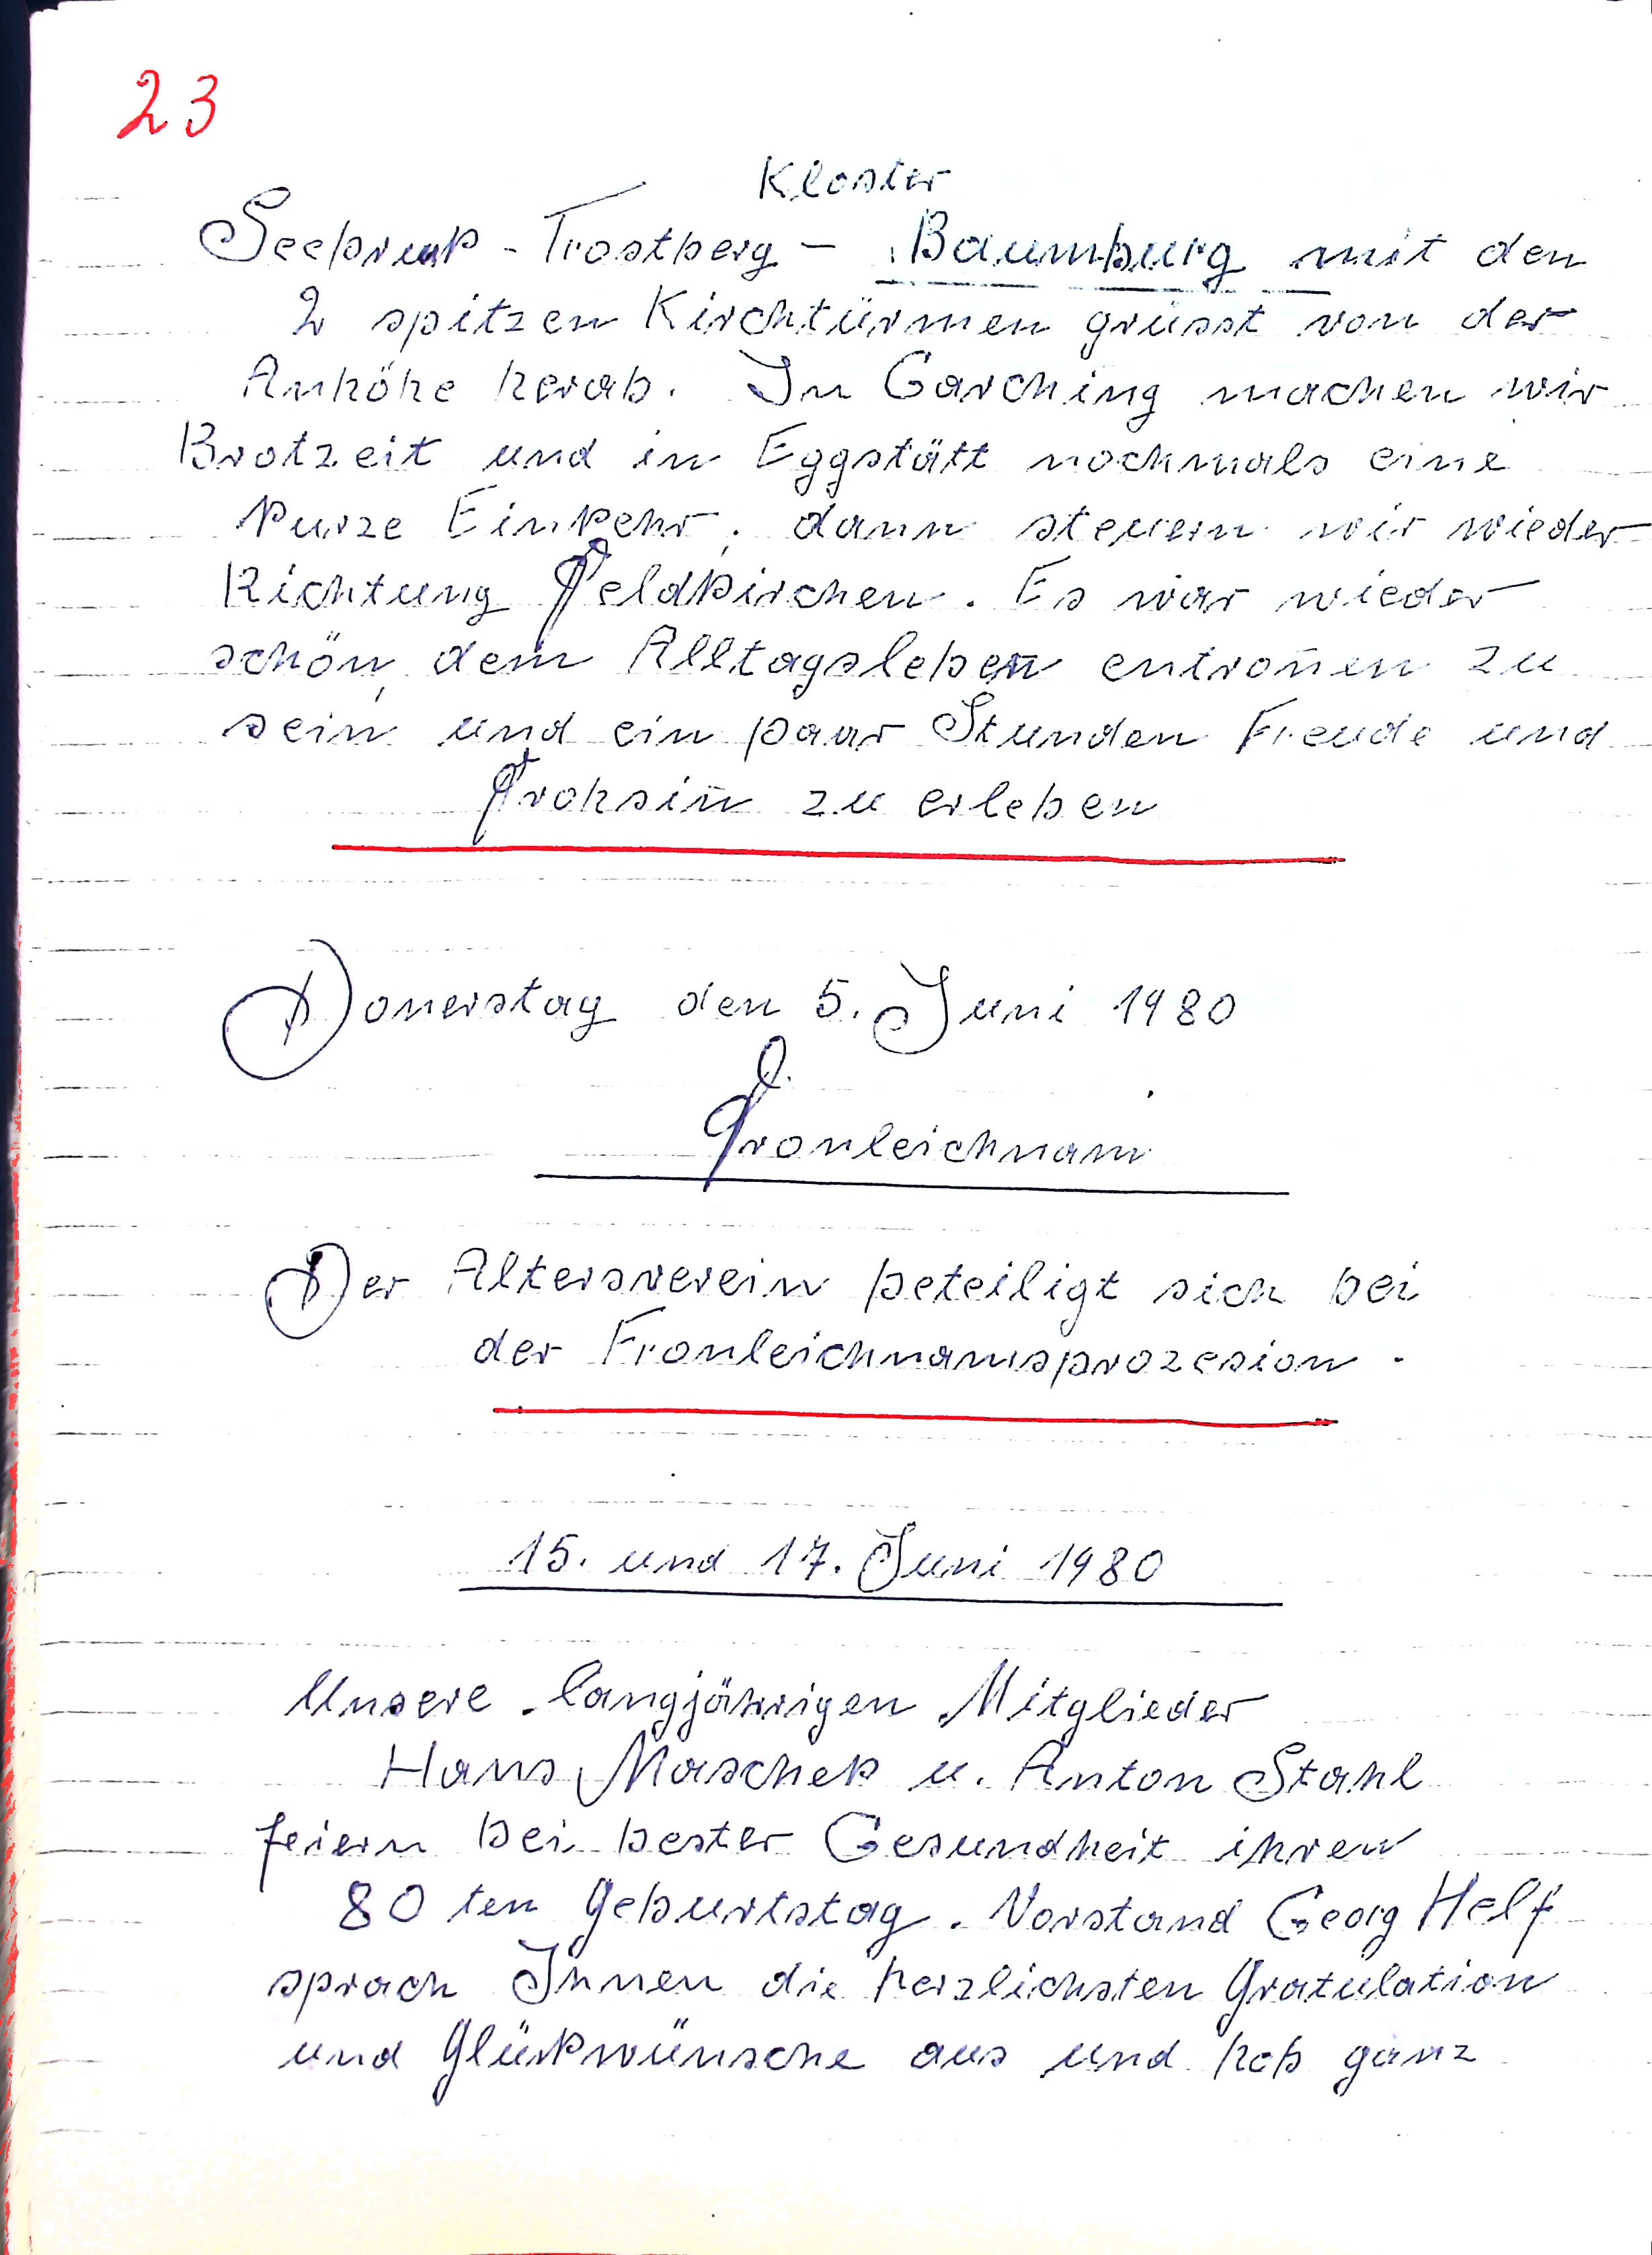 23
Kloster
Seebruk - Trostberg - Baumburg mit den
2 spitzen Kirchtürmen grüsst von der
Anhöhe herab. In Garching machen wir
Brotzeit und in Eggstätt nochmals eine
kurze Einkehr, dann steuern wir wieder
Richtung Feldkirchen. Es war wieder
schön, dem Alltagsleben entron̄en zu
sein und ein paar Stunden Freude und
Frohsin̄ zu erleben
Donerstag den 5. Juni 1980
Fronleichnam
Der Altersverein beteiligt sich bei
der Fronleichnamsprozesion.
15. und 17. Juni 1980
Unsere langjährigen Mitglieder
Hans Maschek u. Anton Stahl
feiern bei bester Gesundheit ihren
80 ten Geburtstag. Vorstand Georg Helf
sprach Ihnen die herzlichsten Gratulation
und Glükwünsche aus und hob ganz